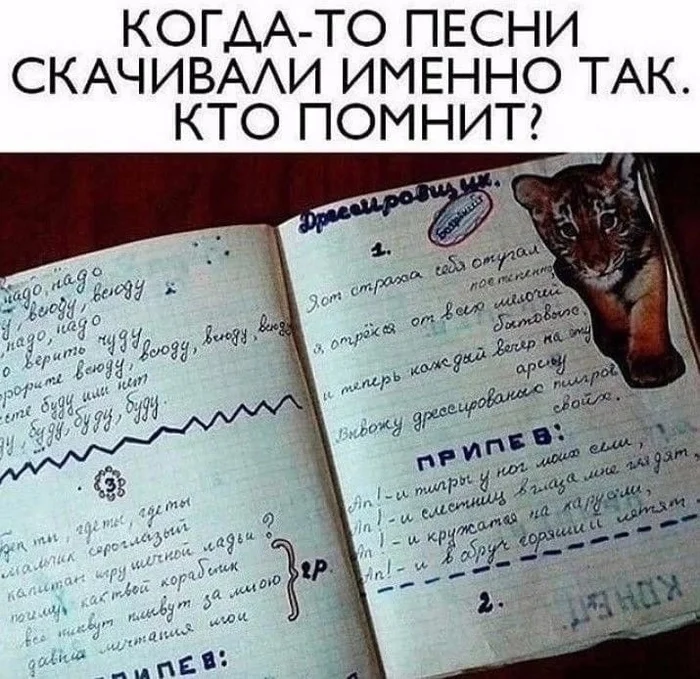 КОГДА-ТО ПЕСНИ
СКАЧИВАЛИ ИМЕННО ТАК.
КТО ПОМНИТ?
надо, надо
всюду, всюду
надо, надо
верить чуду
всюду, всюду, всюду
буду или нет
буду, буду, буду.
3
где ты, где ты
мальчик сероглазый
капитан игрушечной ладьи?
почему, как твой кораблик
все плывут плывут за мною
давние мечтания мои
гр.
ПЕВ:
Дрессировщик.
1.
Я от страха себя отучал
постепенно
я отрёкся от всех мелочей
бытовых,
и теперь каждый вечер на эту
арену
Вывожу дрессированных тигров
своих.
ПРИПЕВ:
Ап! - и тигры у ног моих сели,
Ап! - и с лестниц в глаза мне глядят,
Ап! - и кружатся на карусели,
Ап! - и в обруч горящий летят
2.
КОНЕЦ